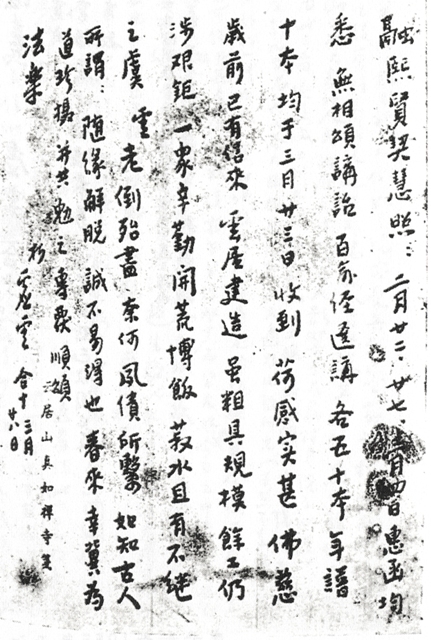 融熙賢契慧照：二月廿二、廿七、三月四日惠函均
悉 無相頌講話 百喻經選講 各五十本 年譜
十本 均于三月廿三日收到 荷感实甚 佛慈
歲前已有信來 雲居建造 虽粗具規模 餘工仍
涉艰鉅 一眾辛勤開荒博飯 菽水且有不继
之虞 雲老倒殆盡 奈何夙債所繫 始知古人
所謂：随缘解脱 誠不易得也 春來幸冀为
道珍攝 并共勉之 專覆順頌
法樂
虛雲 合十 三月廿八日
居山真如禅寺箋